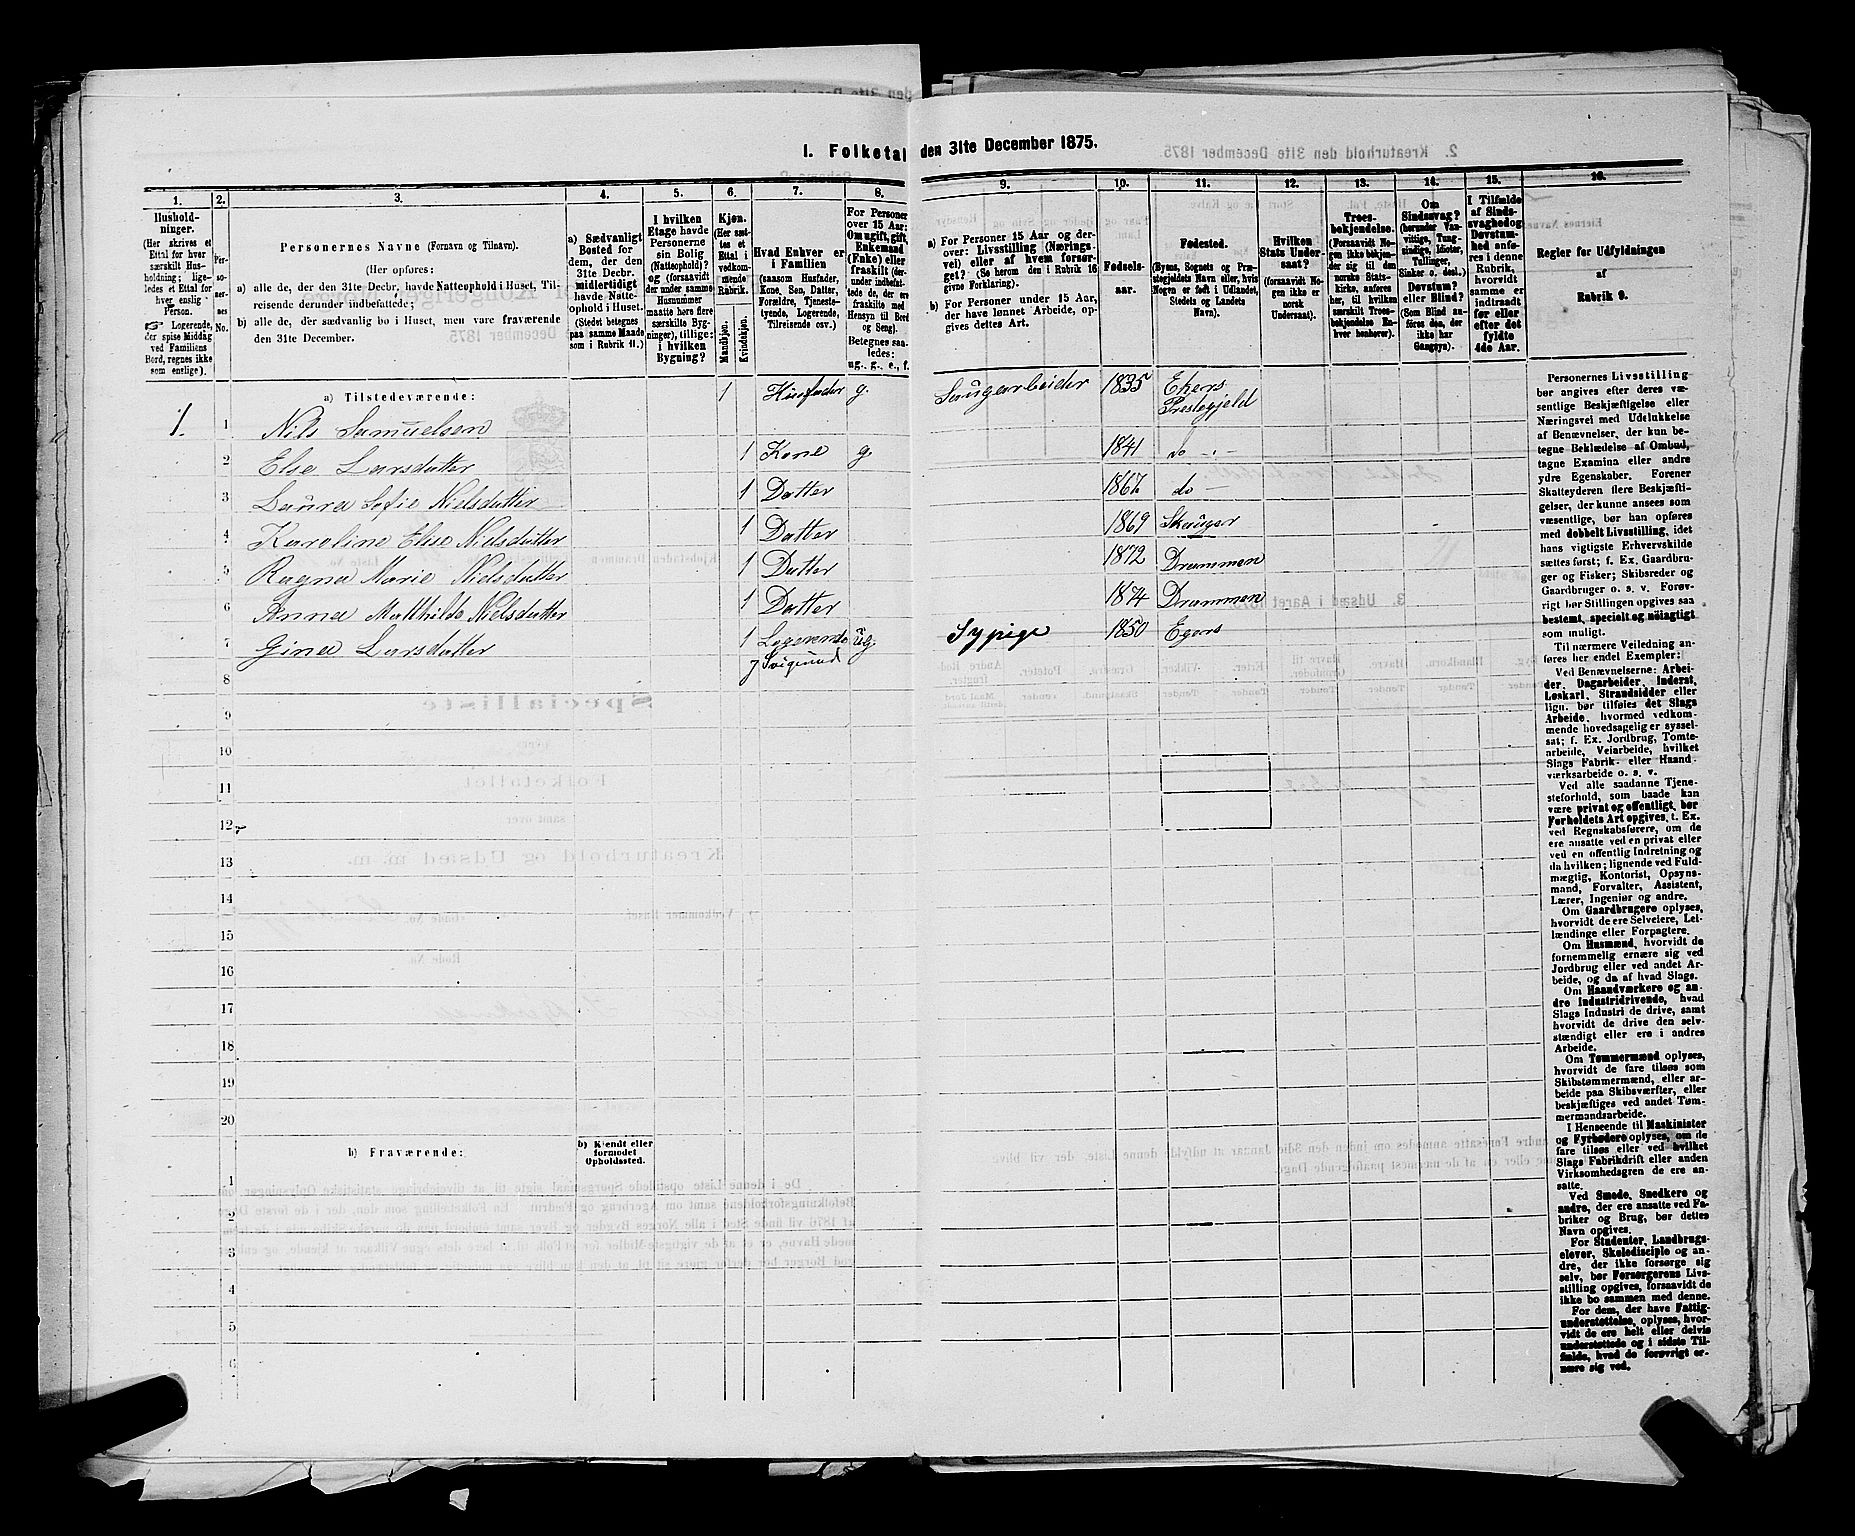 I. Folketal den 31te December 1875.
1. 2. 3. 4. 5. 6. 7. 8. 9. 10. 11. 12. 13. 14. 15. 16.
Hushold-
ninger.
(Her skrives et
Ettal for hver
særskilt Hus-
holdning; lige-
ledes et Ettal for
hver enslig
Person.
☞ Logerende,
der spise Middag
ved Familiens
Bord, regnes ikke
som enslige).
Per-
so-
ner-
nes
No.
Personernes Navne (Fornavn og Tilnavn).
(Her opføres:
a) alle de, der den 31te Decbr. havde Natteophold i Huset, Til-
reisende derunder indbefattede;
b) alle de, der sædvanlig bo i Huset, men vare fraværende
den 31te December.
a) Sædvanligt
Bosted for
dem, der den
31te Decbr.
midlertidigt
havde Natte-
ophold i Huset.
(Stedet betegnes
paa samme Maade
som i Rubrik 11.)
I hvilken
Etage havde
Personerne
sin Bolig
(Natteophold)?
(forsaavidt
der under samme
Husnummer
maatte høre flere
særskilte Byg-
ninger), tillige:
i hvilken
Bygning?
Kjøn.
(Her sæt-
tes et
Ettal i
vedkom-
mende
Rubrik.
Mandkjøn.
Kvindekjøn.
Hvad Enhver er
i Familien
(saasom Husfader,
Kone, Søn, Datter,
Forældre, Tjeneste-
tyende, Logerende,
Tilreisende osv.)
For Personer
over 15 Aar:
Om ugift, gift,
Enkemand
(Enke) eller
fraskilt (der-
under indbefat-
tede de, der ere
fraskilte med
Hensyn til Bord
og Seng).
Betegnes saa-
ledes:
ug., g., e., f.
a) For Personer 15 Aar og der-
over: Livsstilling (Nærings-
vei) eller af hvem forsør-
get? (Se herom den i Rubrik 16
givne Forklaring).
b) For Personer under 15 Aar,
der have lønnet Arbeide, op-
gives dettes Art.
Fødsels-
aar.
Fødested.
(Byens, Sognets og Præ-
stegjeldets Navn eller, hvis
Nogen er født i Udlandet,
Stedets og Landets
Navn).
Hvilken
Stats Under-
saat?
(forsaavidt No-
gen ikke er
norsk
Undersaat).
Troes-
bekjendelse.
(Forsaavidt No-
gen ikke bekjen-
der sig til den
norske Stats-
kirke, anføres
her, til hvilken
særskilt Troes-
bekjendelse En-
hver henhører).
Om
Sindssvag?
(herunder Van-
vittige, Tung-
sindige, Idioter,
Tullinger,
Sinker o. desl.)
Døvstum?
eller Blind?
(Som Blind an-
føres den, der
ikke har
Gangsyn).
I Tilfælde
af Sinds-
svaghed og
Døvstum-
hed anfø-
res i denne
Rubrik,
hvorvidt
samme er
indtraadt
før eller
efter det
fyldte
4de Aar.
Regler for Udfyldningen
af
Rubrik 9.
a) Tilstedeværende:
1. 1 Nils Samuelsen 1 Husfader g. Saugarbeider 1835 Ekers
Prestegjeld
2 Else Larsdatter 1 Kone g. 1841 do
3 Laura Sofie Nielsdatter 1 Datter 1867 do
4 Karoline Elise Nielsdatter 1 Datter 1869 Skouger
5 Ragna Marie Nielsdatter 1 Datter 1872 Drammen
6 Anna Mathilde Nielsdatter 1 Datter 1874 Drammen
7 Gina Larsdatter 1 Logerende ug. Sypige 1850 Egers
8
9
10
11
12
13
14
15
16
17
18
19
20
b) Fraværende:
b) Kjendt eller
formodet
Opholdssted.
1
2
3
4
5
6
Personernes Livsstilling
bør angives efter deres væ-
sentlige Beskjæftigelse eller
Næringsvei med Udelukkelse
af Benævnelser, der kun be-
tegne Beklædelse af Ombud,
tagne Examina eller andre
ydre Egenskaber. Forener
Skatteyderen flere Beskjæfti-
gelser, der kunne ansees som
væsentlige, bør han opføres
med dobbelt Livsstilling, idet
hans vigtigste Erhvervskilde
sættes først; f. Ex. Gaardbru-
ger og Fisker; Skibsreder og
Gaardbruger o. s. v. Forøv-
rigt bør Stillingen opgives saa
bestemt, specielt og nøiagtigt
som muligt.
Til nærmere Veiledning an-
føres her endel Exempler:
Ved Benævnelserne: Arbei-
der, Dagarbeider, Inderst,
Løskarl, Strandsidder eller
lign. bør tilføies det Slags
Arbeide, hvormed vedkom-
mende hovedsagelig er syssel-
sat; f. Ex. Jordbrug, Tomte-
arbeide, Veiarbeide, hvilket
Slags Fabrik- eller Haand-
værksarbeide o. s. v.
Ved alle saadanne Tjene-
steforhold, som baade kan
være privat og offentligt, bør
Forholdets Art opgives, t. Ex.
ved Regnskabsførere, om de
ere ansatte ved en privat eller
ved en offentlig Indretning og
da hvilken; lignende ved Fuld-
mægtig, Kontorist, Opsyns-
mand, Forvalter, Assistent,
Lærer, Ingeniør og andre.
Om Gaardbrugere oplyses,
hvorvidt de ere Selveiere, Lei-
lændinge eller Forpagtere.
Om Husmænd, hvorvidt de
fornemmelig ernære sig ved
Jordbrug eller ved andet Ar-
beide, og da af hvad Slags.
Om Haandværkere og an-
dre Industridrivende, hvad
Slags Industri de drive, samt
hvorvidt de drive den selv-
stændigt eller ere i andres
Arbeide.
Om Tømmermænd oplyses,
hvorvidt de fare tilsøs som
Skibstømmermænd, eller ar-
beide paa Skibsværfter, eller
beskjæftiges ved andet Tøm-
mermandsarbeide.
I Henseende til Maskinister
og Fyrbødere oplyses, om de
fare tilsøs eller ved hvilket
Slags Fabrikdrift eller anden
Virksomhedsgren de ere an-
satte.
Ved Smede, Snedkere og
andre, der ere ansatte ved Fa-
briker og Brug, bør dettes
Navn opgives.
For Studenter, Landbrugs-
elever, Skoledisciple og an-
dre, der ikke forsørge sig
selv, bør Forsørgerens Livs-
stilling opgives, forsaavidt de
ikke bo sammen med denne.
For dem, der have Fattig-
understøttelse, oplyses, hvor-
vidt de ere helt eller delvis
understøttede og i sidste Til-
fælde, hvad de forøvrigt er-
nære sig ved.